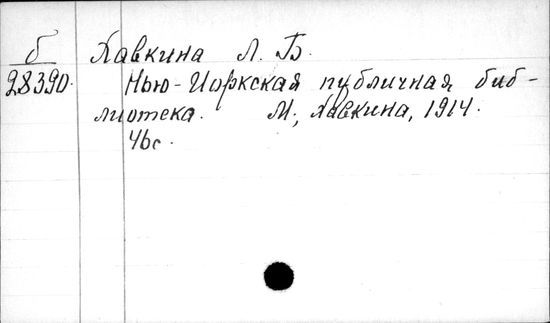 б Хавкина Л. Б.
28390. Нью-Иоркская публичная биб-
лиотека. М., Хавкина, 1914.
46с.